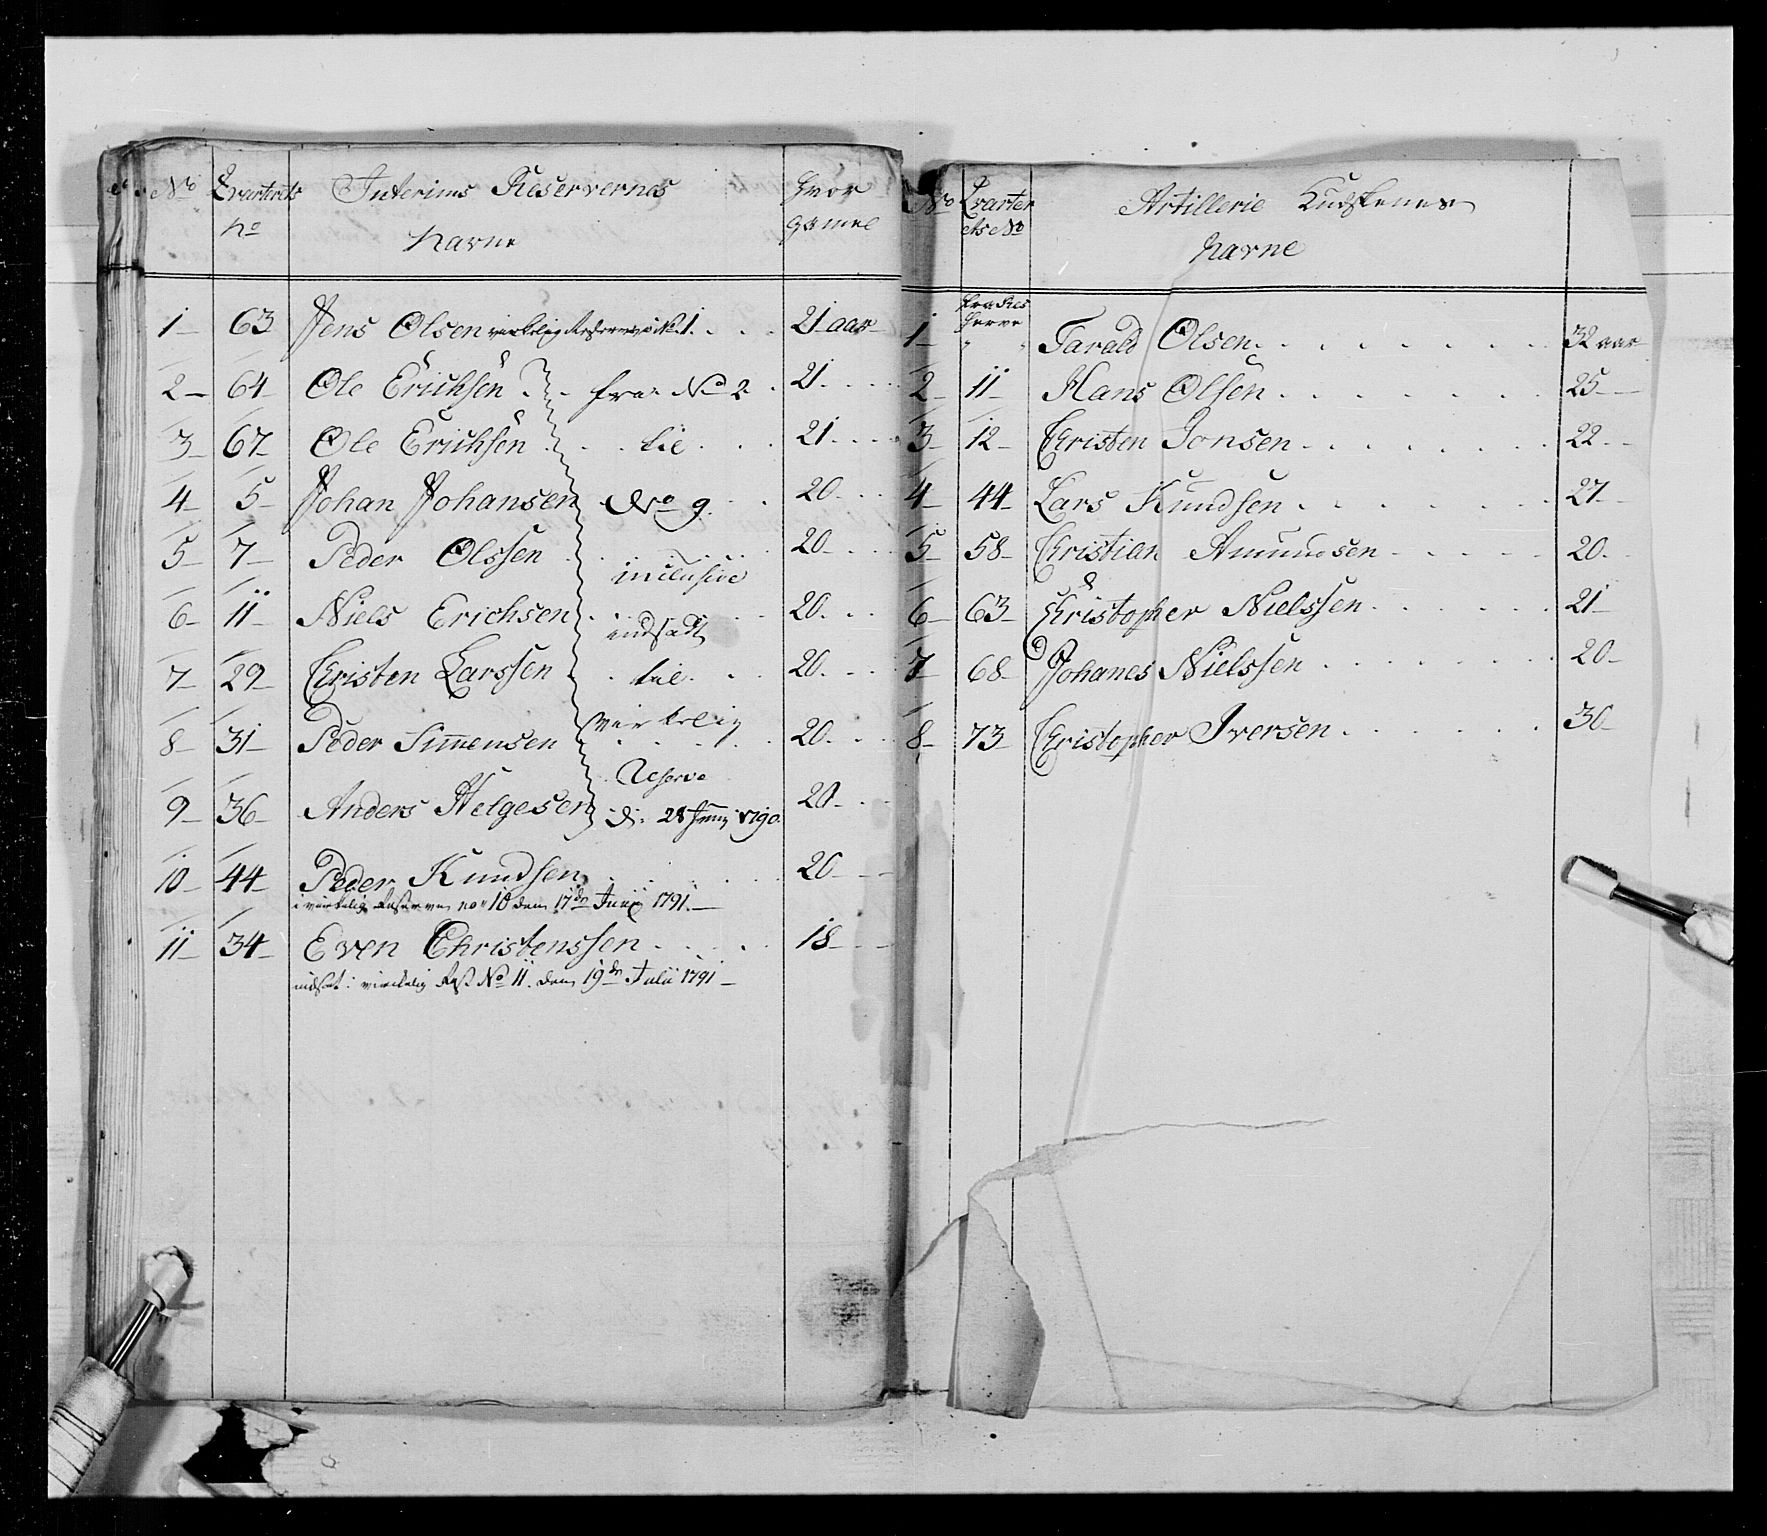 No Qvarterets Interims Reservernes Hvor
No Navne gamel
1 63 Jens Olsen virkelig Reserve No 1. 21 aar
2 64 Ole Erichsen fra No 2 21
3 67 Ole Erichsen til 21
4 5 Johan Johansen No 9 20
5 7 Peder Olssen inclusive 20
6 11 Niels Erichsen indsadt 20
7 29 Christen Larssen til 20
8 31 Peder Simensen virkelig 20
Reserve
9 36 Anders Helgesen d: 28 Juny 1790 20
10 44 Peder Knudsen 20
i virkelig Reserven no 10 den 17de Juny 1791
11 34 Even Christenssen 18
indsat i virkelig Res No 11. den 19de Julii 1791
No Qvarter Artillerie Kudskenes
ets No Navne
fra Res
serve
1 " " Tarald Olsen 32 aar
2 11 Hans Olsen 25
3 12 Christen Jonsen 22
4 44 Lars Knudsen 27
5 58 Christian Amundsen 20
6 63 Christopher Nielssen 21
7 68 Johanes Nielssen 20
8 73 Christopher Iversen 30